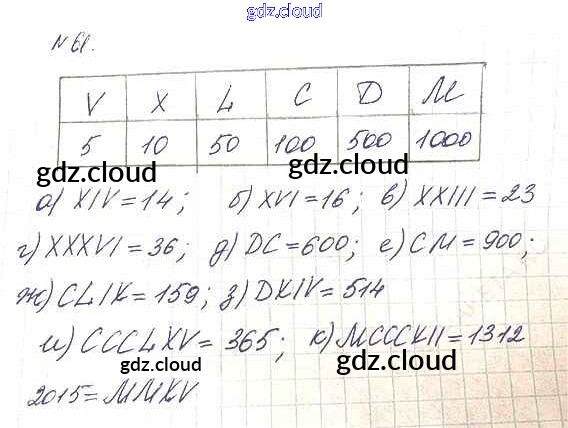 gdz.cloud
gdz.cloud
№ 61.
V X L C D M
5 10 50 100 500 1000
gdz.cloud gdz.cloud
а) XIV = 14; б) XVI = 16; в) XXIII = 23
г) XXXVI = 36; д) DC = 600; е) CM = 900;
gdz.cloud gdz.cloud
ж) CLIX = 159; з) DXIV = 514
и) CCCLXV = 365; к) MCCCXII = 1312
gdz.cloud gdz.cloud
2015 = MMXV